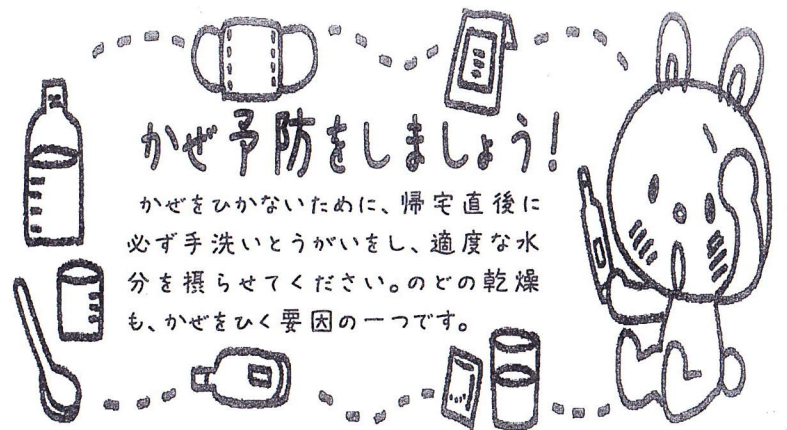 かぜ予防をしましょう!
かぜをひかないために、帰宅直後に
必ず手洗いとうがいをし、適度な水
分を摂らせてください。のどの乾燥
も、かぜをひく要因の一つです。